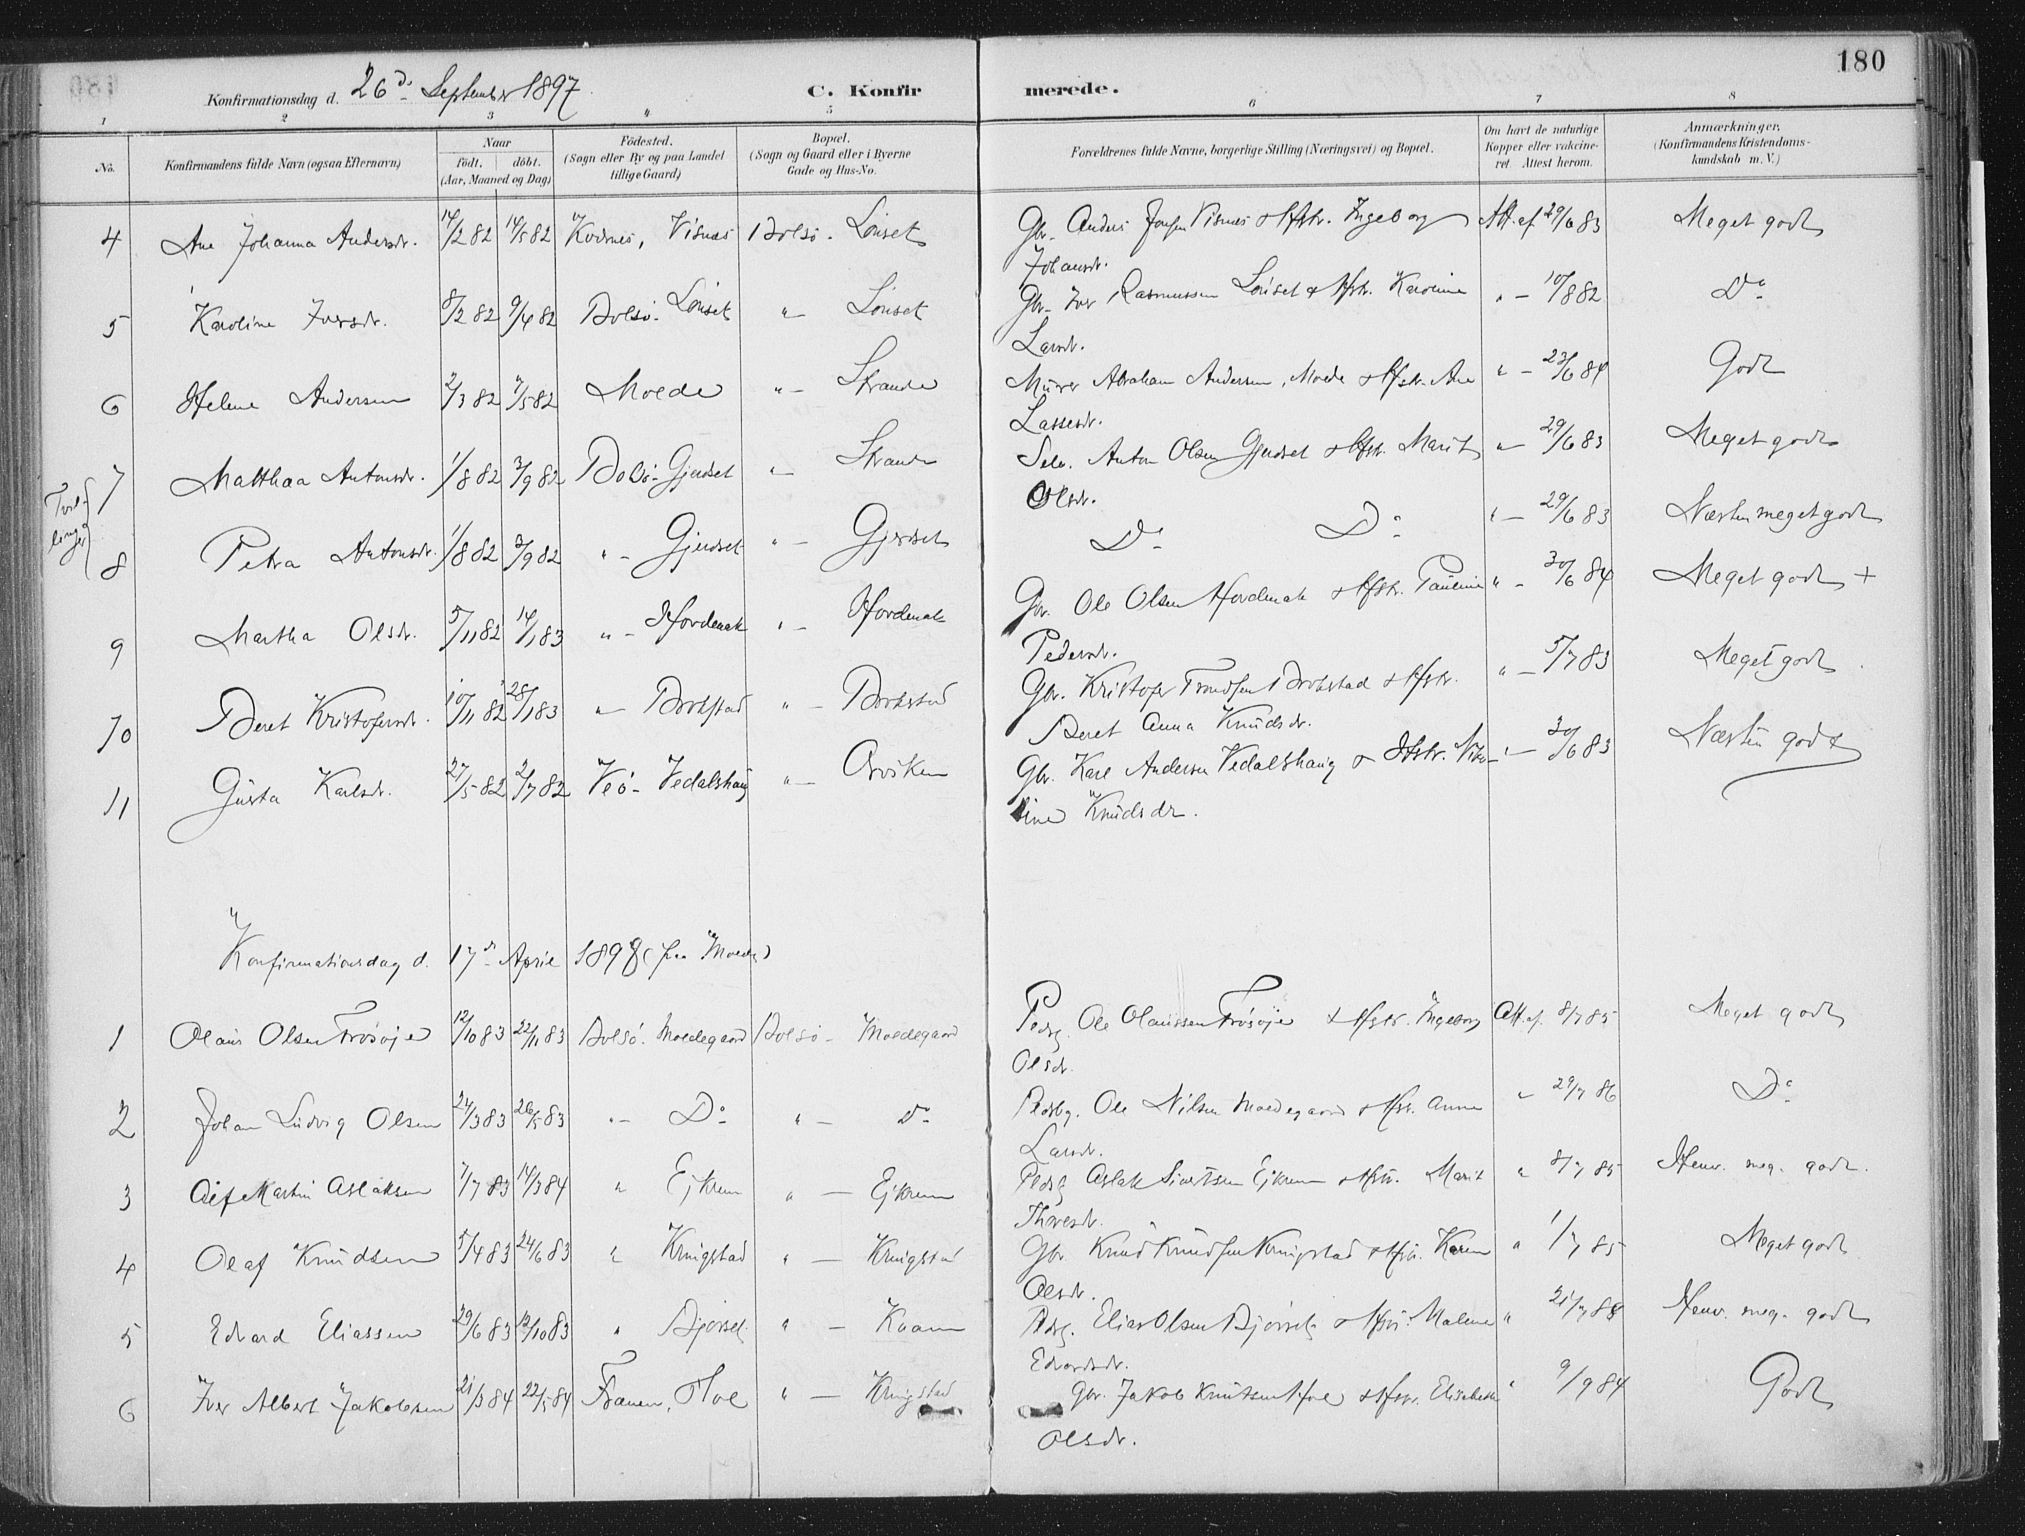 180
Konfirmationsdag d. 26d. September 1897. C. Konfirmerede.
1 2 3 4 5 6 7 8
No. Konfirmandens fulde Navn (ogsaa Efternavn) Naar født. døbt. (Aar, Maaned og Dag) Födested. (Sogn eller By og paa Landet tillige Gaard) Bopæl. (Sogn og Gaard eller i Byerne Gade og Hus-No. Forældrenes fulde Navne, borgerlige Stilling (Næringsvei) og Bopæl. Om havt de naturlige Kopper eller vaccineret. Attest herom. Anmærkninger. (Konfirmandens Kristendomskundskab m. V.)
4 Ane Johanna Andersdr. 14/2 82 14/5 82 Kvernes, Visnæs Bolsø - Lønset Gbr. Anders Jonsen Visnæs & Hstr. Ingeborg Att. af 29/6 83 Meget godt
Johansdr.
5 Karoline Iversdr. 8/2 82 9/4 82 Bolsø - Lønset " - Lønset Gbr. Iver Rasmussen Lønset & Hstr. Karoline " - 10/8 82 Do
Larsdr.
6 Helene Andersen 2/3 82 7/5 82 Molde " - Strande Murer Abraham Andersen, Molde & Hstr. Ane " - 23/6 84 Godt
Lassesdr.
Tvillinger
7 Matthea Antonsdr. 1/8 82 3/9 82 Bolsø - Gjerdset " - Strande Selv. Anton Olsen Gjerdset & Hstr. Marit " - 29/6 83 Meget godt
Olsdr.
8 Petra Antonsdr. 1/8 82 3/9 82 " - Gjerdset " - Gjerset Do Do " - 29/6 83 Næsten meget godt
9 Martha Olsdr. 5/11 82 14/1 83 " - Hordenak " - Hordenak Gbr. Ole Olsen Hordenak & Hstr. Pauline " - 30/6 84 Meget godt +
Pedersdr.
10 Beret Kristofersdr. 10/11 82 28/1 83 " - Brokstad " - Brokstad Gbr. Kristofer Trondsen Brokstad & Hstr. " - 5/7 83 Meget godt
Beret Anna Knudsdr.
11 Gusta Karlsdr. 27/5 82 2/7 82 Veø - Vedalshaug " - Orviken Gbr. Karl Andersen Vedalshaug & Hstr. Niko- " - 30/6 83 Næsten godt
line Knudsdr.
Konfirmationsdag d. 17d April 1898 (paa Molde)
1 Olaus Olsen Frøsøje 12/10 83 22/11 83 Bolsø - Moldegaard Bolsø - Moldegaard Pdsbg. Ole Olaussen Frøsøje & Hstr. Ingeborg Att. af. 8/7 85 Meget godt
Olsdr.
2 Johan Ludvig Olsen 24/3 83 26/5 83 " - Do " - Do Pldsbg. Ole Nilsen Moldegaard & Hstr. Anne " 29/7 86 Do
Larsdr.
3 Alf Martin Aslaksen 7/7 83 14/3 84 " Ejkrem " - Ejkrem Pldsbg Aslak Sivertsen Ejkrem & Hstr. Marit " 8/7 85 Henv. meg. godt.
Thoresdr.
4 Olaf Knudsen 5/4 83 24/6 83 " Kringstad " - Kringstad Gbr. Knud Knudsen Kringstad & Hstr. Karen " 1/7 85 Meget godt
Olsdr.
5 Edvard Eliassen 29/6 83 12/10 83 " Bjørset " - Kvam Pldsbg. Elias Olsen Bjørset & Hstr. Malene " 21/7 84 Henv. meg. godt
Edvardsdr.
6 Iver Albert Jakobsen 21/3 84 22/5 84 Frænen, Hoel " - Kringstad Gbr. Jakob Knutsen Hoel & Hstr. Elisabeth " 9/9 84 Godt
Olsdr.